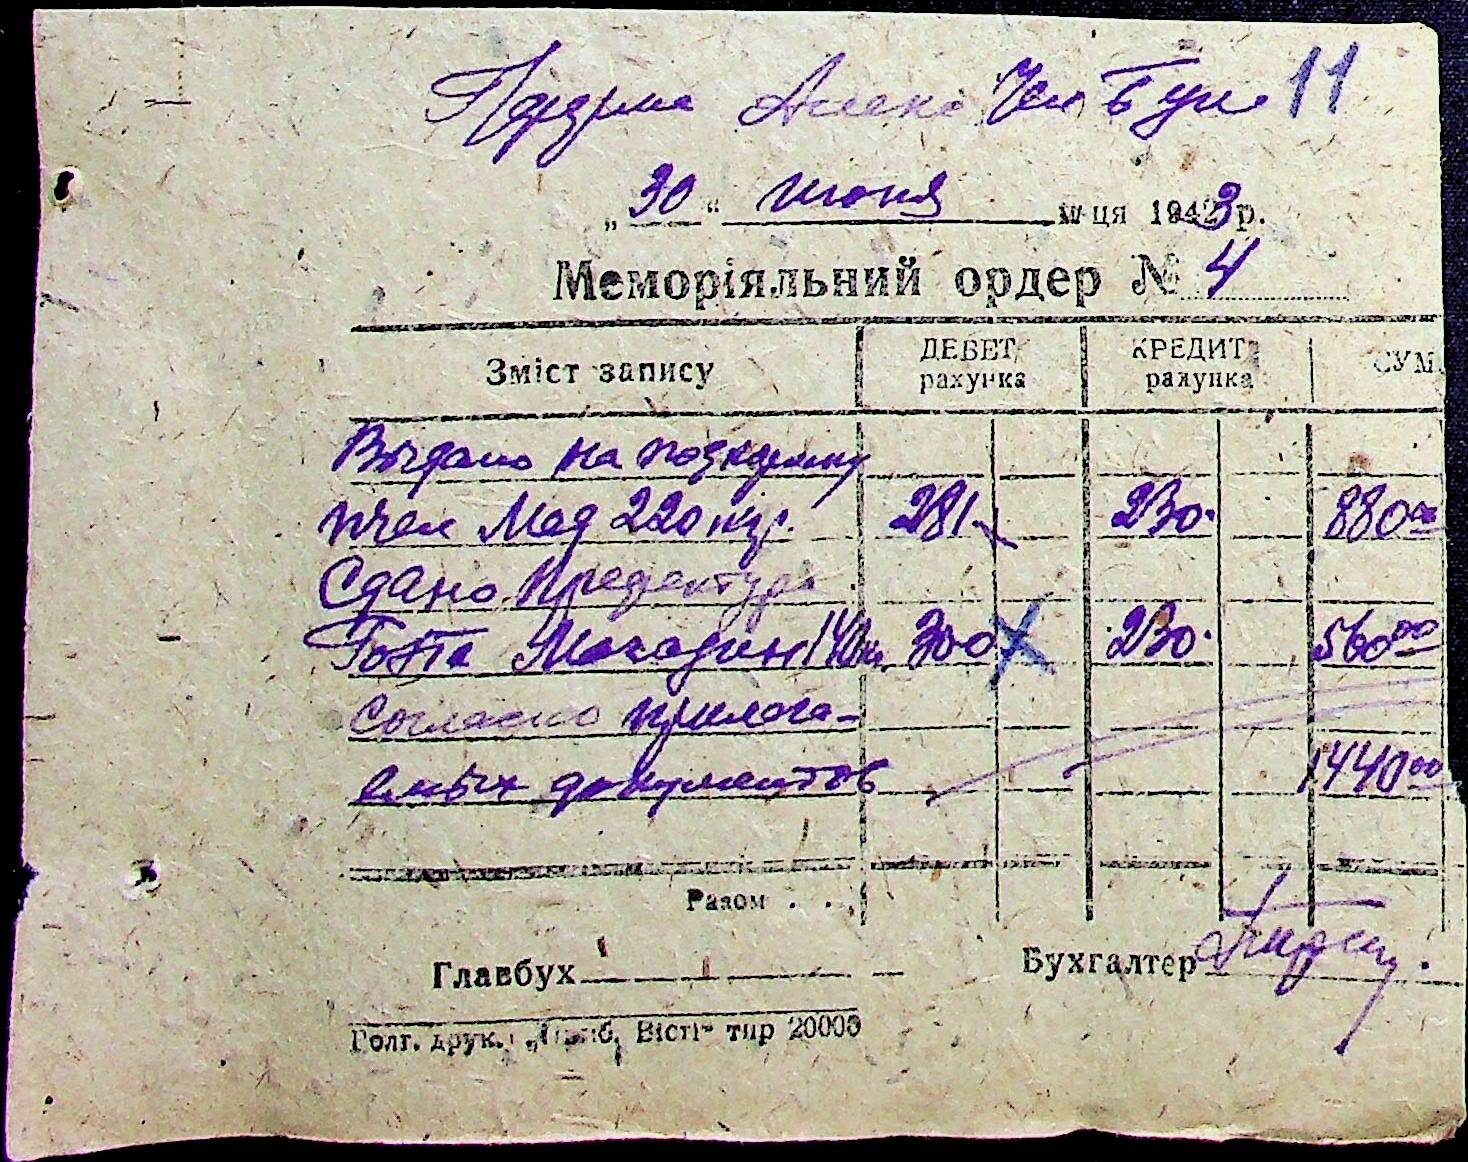 11
„30“ июня м-ця 1943 р.
Меморіяльний ордер № 4
Зміст запису ДЕБЕТ рахунка КРЕДИТ рахунка СУМ
Выдано на подкормку
пчел Мед 220 кгр. 281 230 880 00
Сдано Префектура
Голта Магазин 140 кг. 300 230 560 00
Согласно прилога-
емых документов 1440 00
Разом . . .
Главбух Бухгалтер
Голт. друк. Вісті" тир 20000